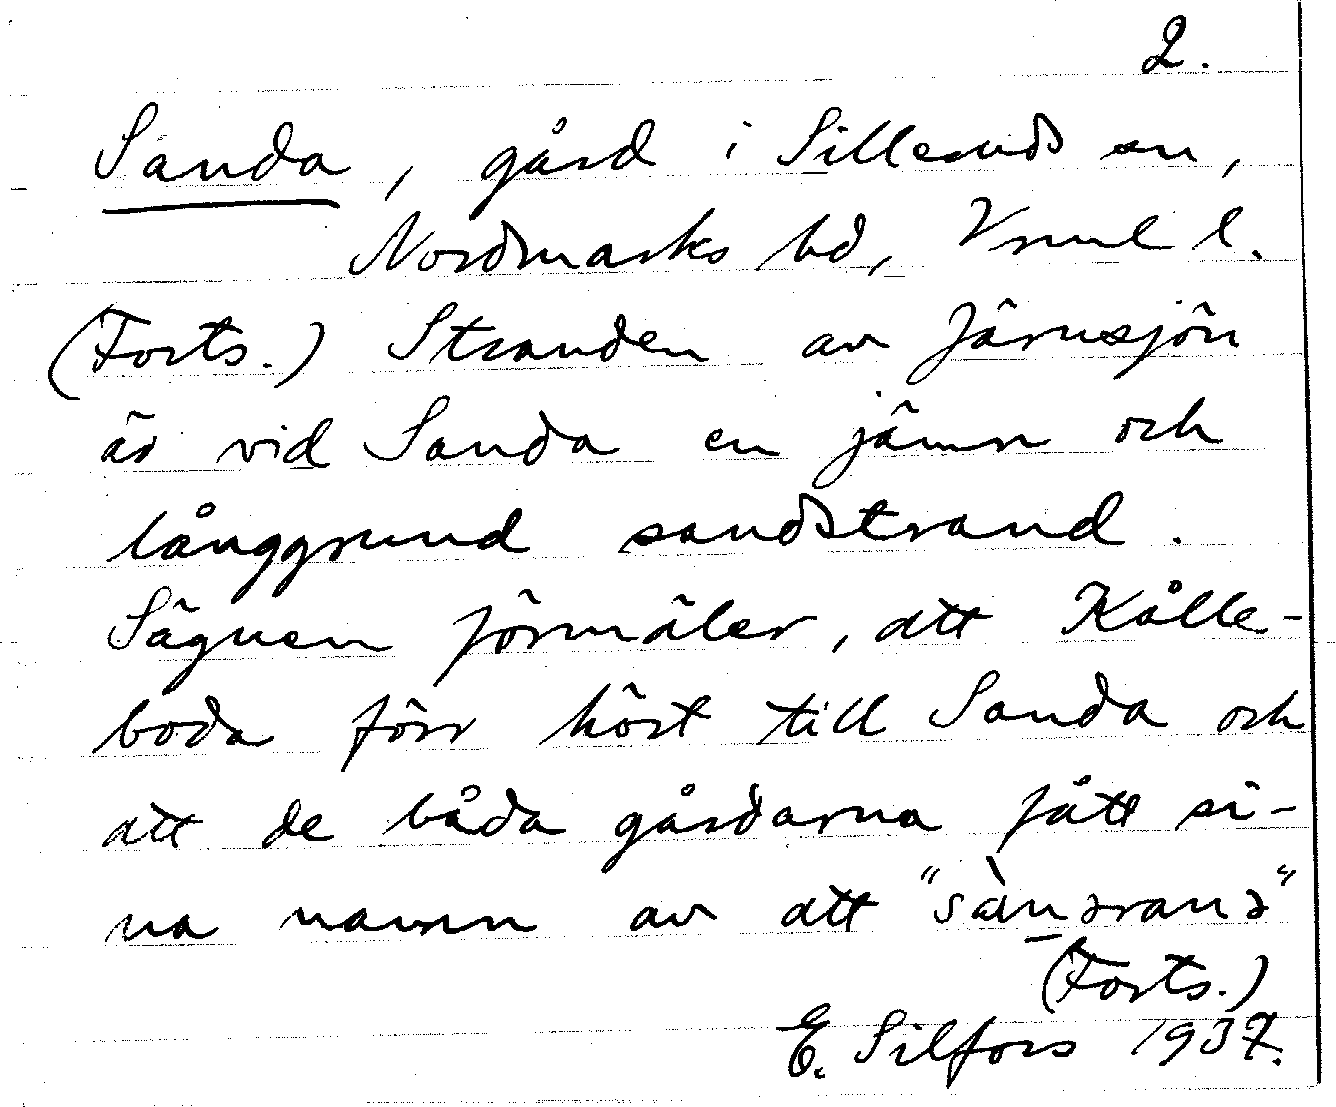 2.
Sanda, gård i Silleruds sn,
Nordmarks hd, Vrml l.
(Forts.) Stranden av Järnsjön
är vid Sanda en jämn och
långgrund sandstrand.
Sägnen förmäler, att Kålle-
boda förr hört till Sanda och
att de båda gårdarna fått si-
na namn av att
(Forts.)
E. Silfors 1937.